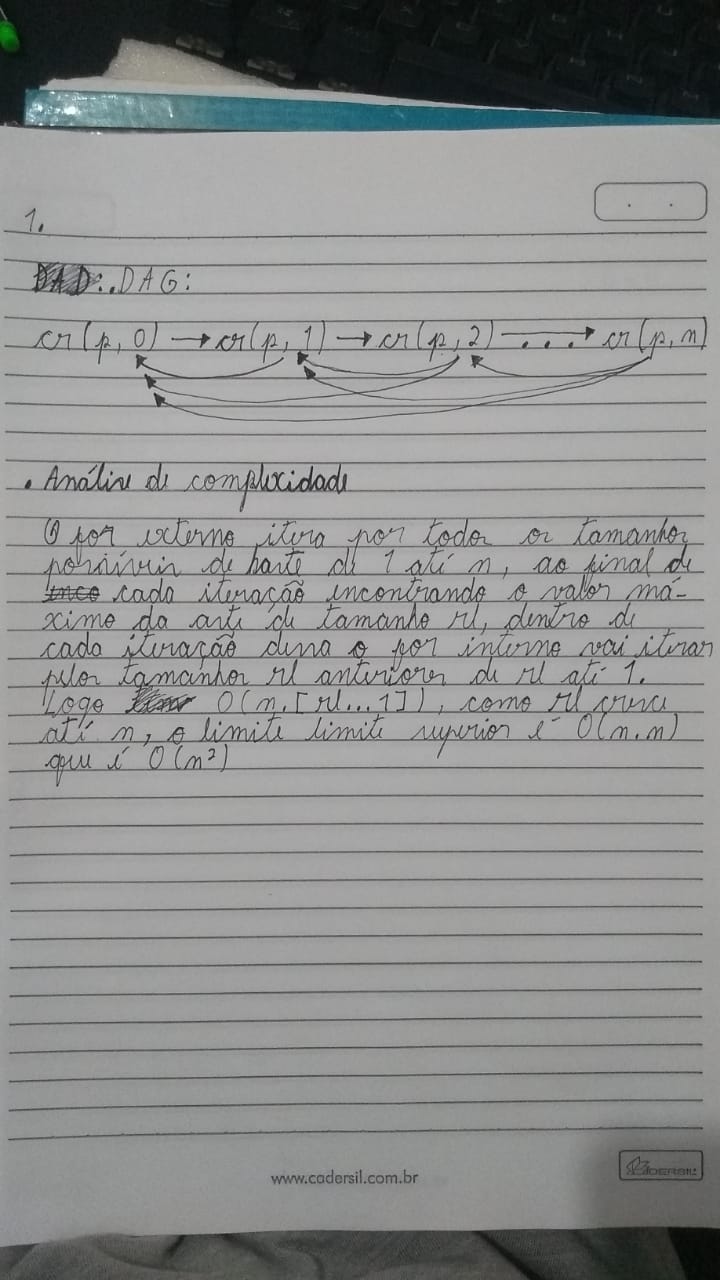 1.
DAD:. DAG:
cr(p, 0) → cr(p, 1) → cr(p, 2) → ... cr(p, n)
. Análise de complexidade
O for externo itera por todos os tamanhos
possíveis de haste de 1 até n, ao final de
cada iteração encontrando o valor má-
ximo da arte de tamanho rl, dentro de
cada iteração dessa o for interno vai iterar
pelos tamanhos rl anteriores de rl até 1.
Logo O(n.[rl...1]), como rl cresce
até n, o limite limite superior é O(n.n)
que é O(n²)
www.cadersil.com.br
CADERSIL